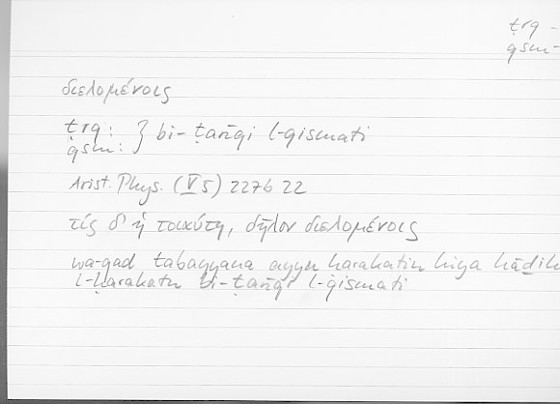 ṭrq -
qsm-
διελομένοις
ṭrq: } bi-ṭarīqi l-qismati
qsm:
Arist. Phys. (V 5) 227b 22
τίς δ' ἡ τοιαύτη, δῆλον διελομένοις
wa-qad tabayyana ayyu ḥarakatin hiya hāḏih
l-ḥarakatu bi-ṭarīqi l-qismati